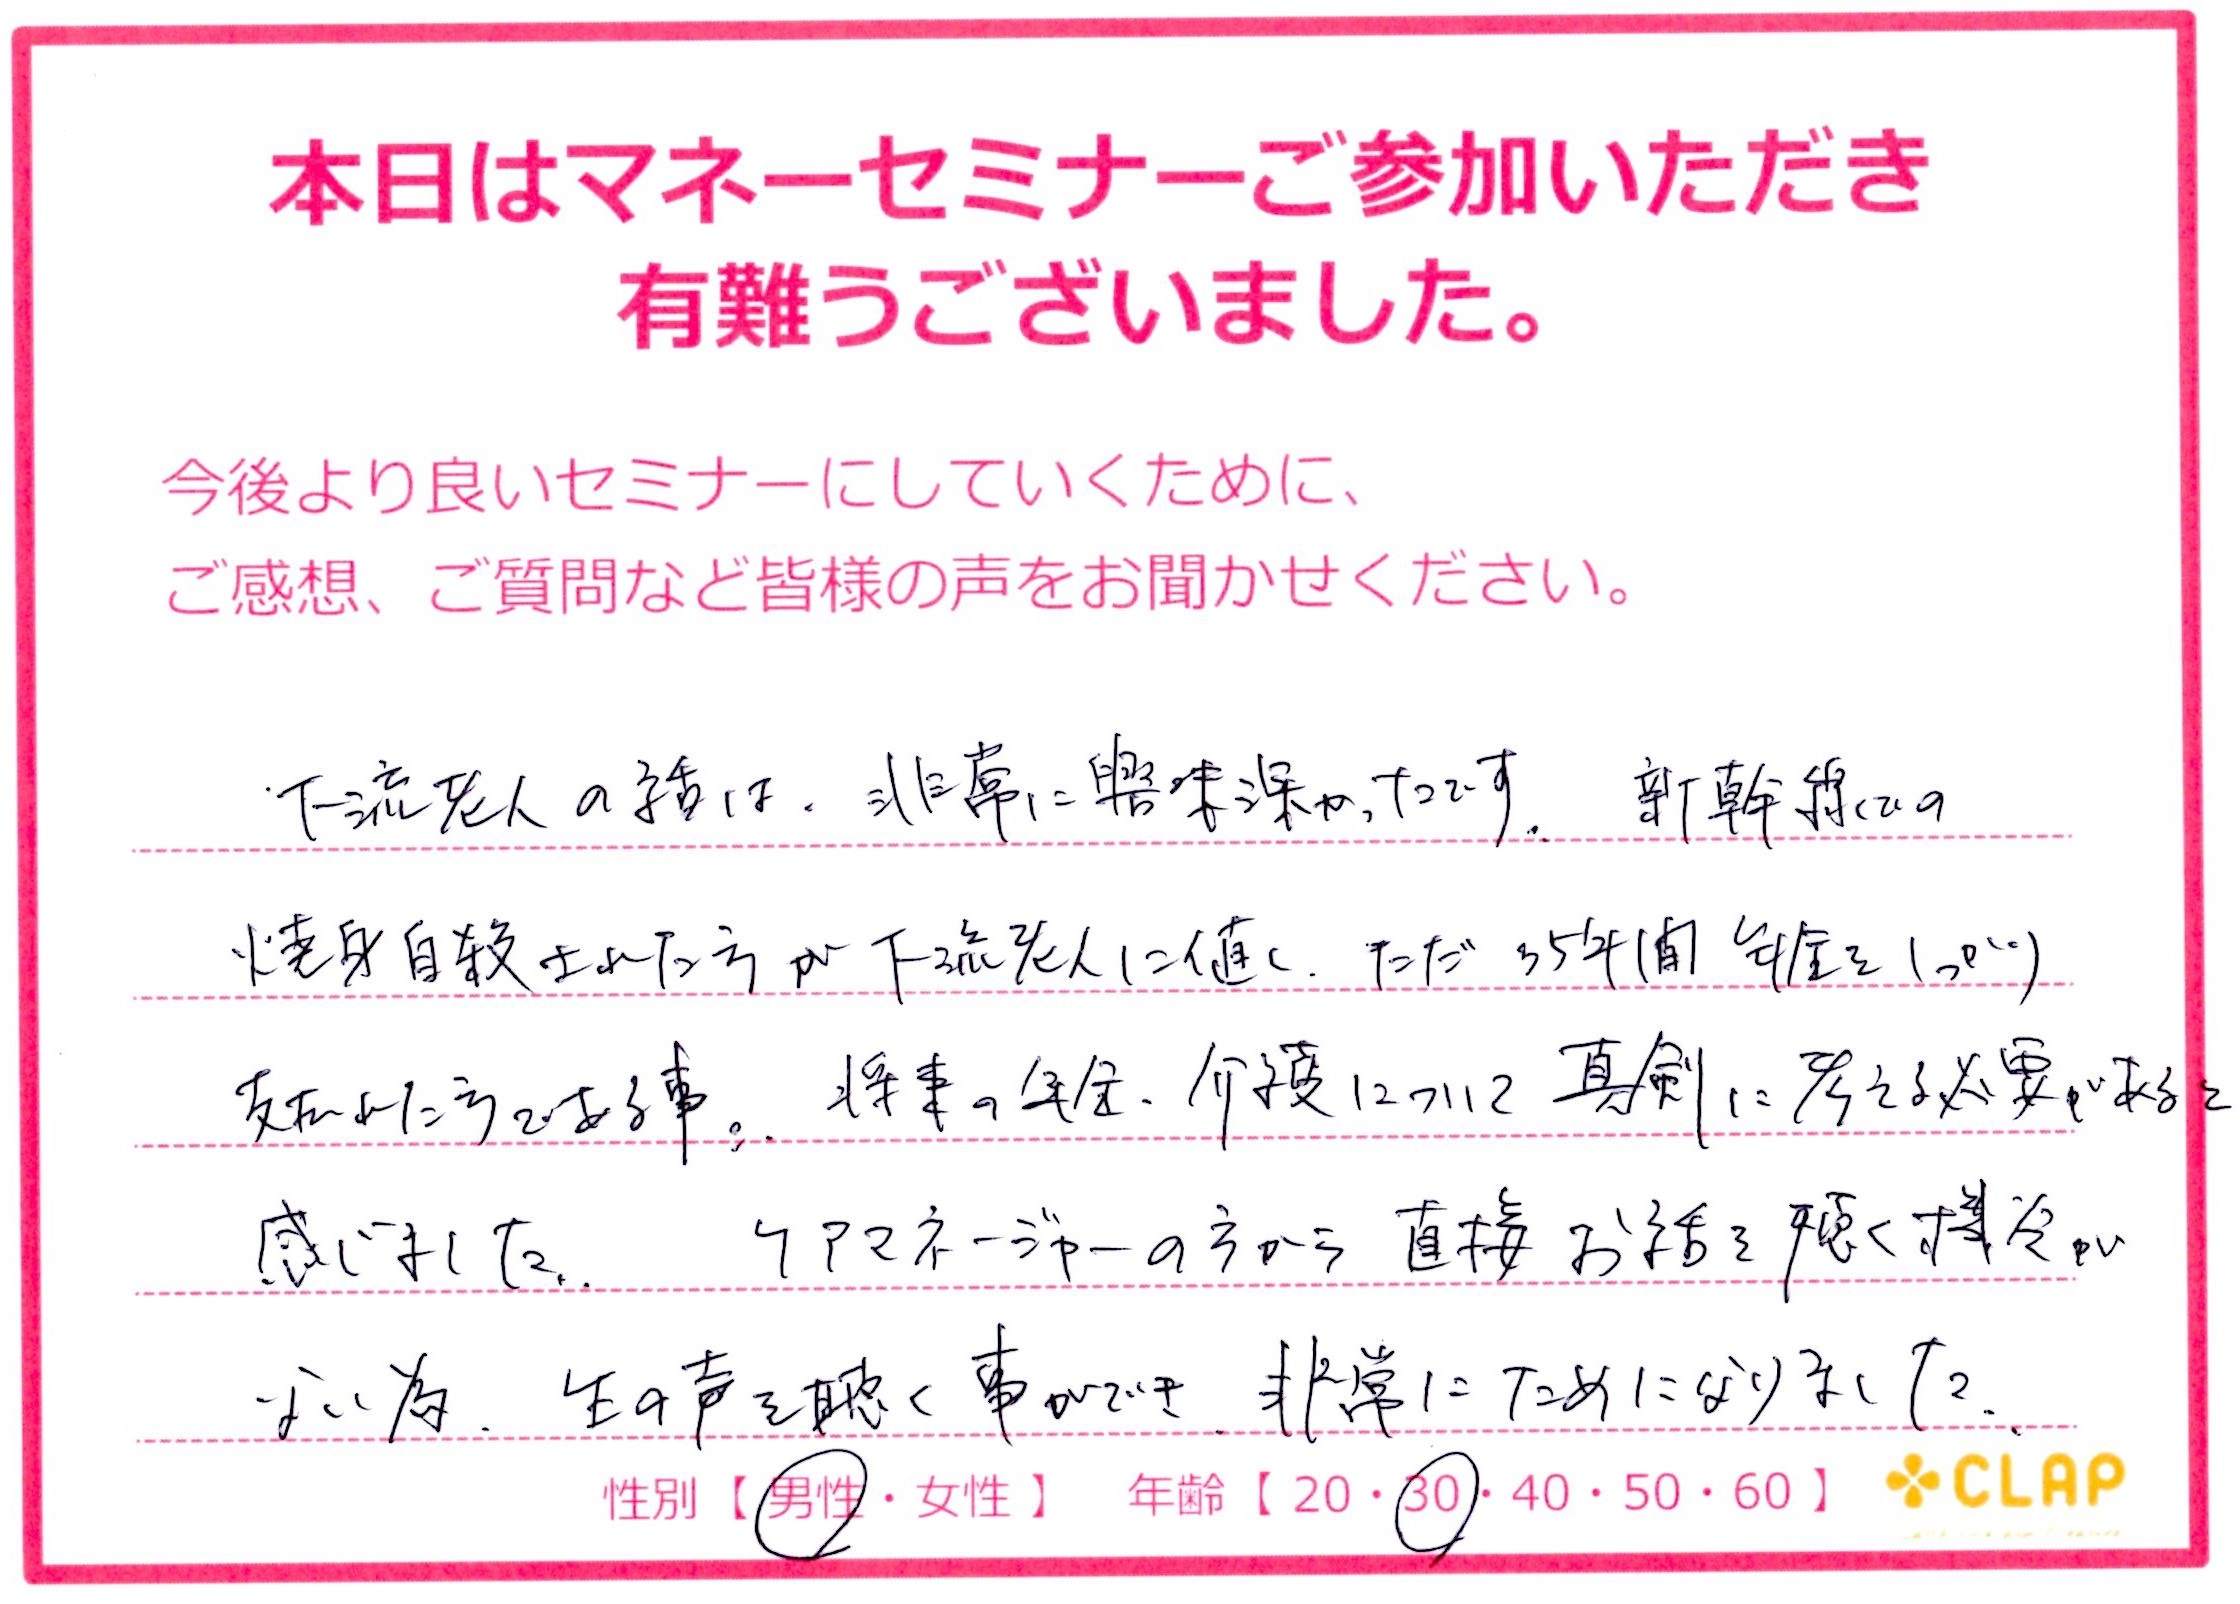 本日はマネーセミナーご参加いただき
有難うございました。
今後より良いセミナーにしていくために、
ご感想、ご質問など皆様の声をお聞かせください。
下流老人の話は、非常に興味深かったです。新幹線での
焼身自殺された方が下流老人に値し、ただ35年間年金をしっかり
支払われた方である事。将来の年金、介護について真剣に考える必要があると
感じました。ケアマネージャーの方から直接お話を聴く機会が
ない為、生の声を聴く事ができ、非常にためになりました。
性別【 男性・女性 】 年齢【 20・30・40・50・60 】 CLAP